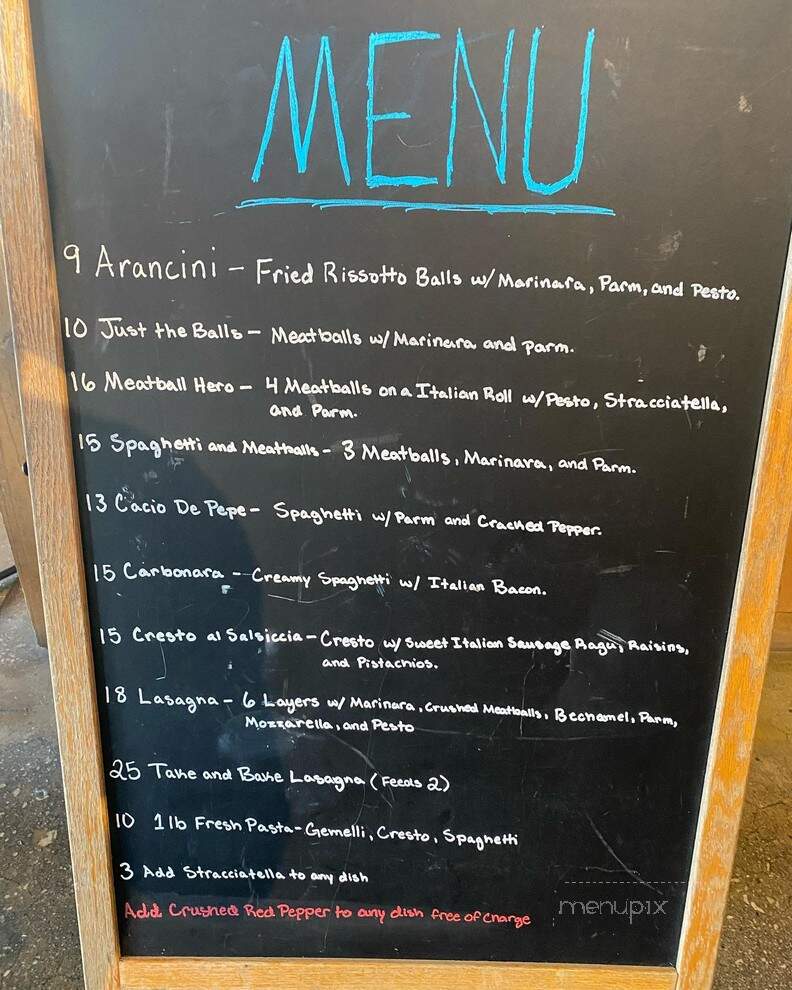 MENU
9 Arancini - Fried Rissotto Balls w/ Marinara, Parm, and Pesto.
10 Just the Balls - Meatballs w/ Marinara and Parm.
16 Meatball Hero - 4 Meatballs on a Italian Roll w/ Pesto, Stracciatella,
and Parm.
15 Spaghetti and Meatballs - 3 Meatballs, Marinara, and Parm.
13 Cacio De Pepe - Spaghetti w/ Parm and Cracked Pepper.
15 Carbonara - Creamy Spaghetti w/ Italian Bacon.
15 Cresto al Salsiccia - Cresto w/ Sweet Italian Sausage Ragu, Raisins,
and Pistachios.
18 Lasagna - 6 Layers w/ Marinara, Crushed Meatballs, Bechamel, Parm,
Mozzarella, and Pesto
25 Take and Bake Lasagna (Feeds 2)
10 1lb Fresh Pasta - Gemelli, Cresto, Spaghetti
3 Add Stracciatella to any dish
Add Crushed Red Pepper to any dish free of charge
menupix